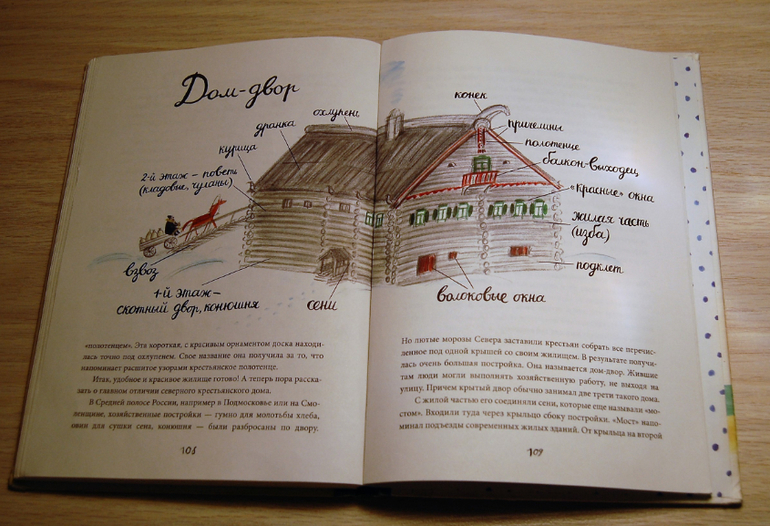 Дом-двор
охлупень
дранка
курица
2-й этаж – поветь
(кладовые, чуланы)
взвоз
1-й этаж –
скотный двор, конюшня
сени
конек
причелины
полотенце
балкон-выходец
«красные» окна
жилая часть
(изба)
подклет
волоковые окна
«полотенцем». Эта короткая, с красивым орнаментом доска находи-
лась точно под охлупнем. Свое название она получила за то, что
напоминает расшитое узорами крестьянское полотенце.
Итак, удобное и красивое жилище готово! А теперь пора расска-
зать о главном отличии северного крестьянского дома.
В Средней полосе России, например в Подмосковье или на Смо-
ленщине, хозяйственные постройки — гумно для молотьбы хлеба,
овин для сушки сена, конюшня — были разбросаны по двору.
108
Но лютые морозы Севера заставили крестьян собрать все перечис-
ленное под одной крышей со своим жилищем. В результате получи-
лась очень большая постройка. Она называется дом-двор. Жившие
там люди могли выполнять хозяйственную работу, не выходя на
улицу. Причем крытый двор обычно занимал две трети такого дома.
С жилой частью его соединяли сени, которые еще называли «мо-
стом». Входили туда через крыльцо сбоку постройки. «Мост» напо-
минал подъезды современных жилых зданий. От крыльца на второй
109